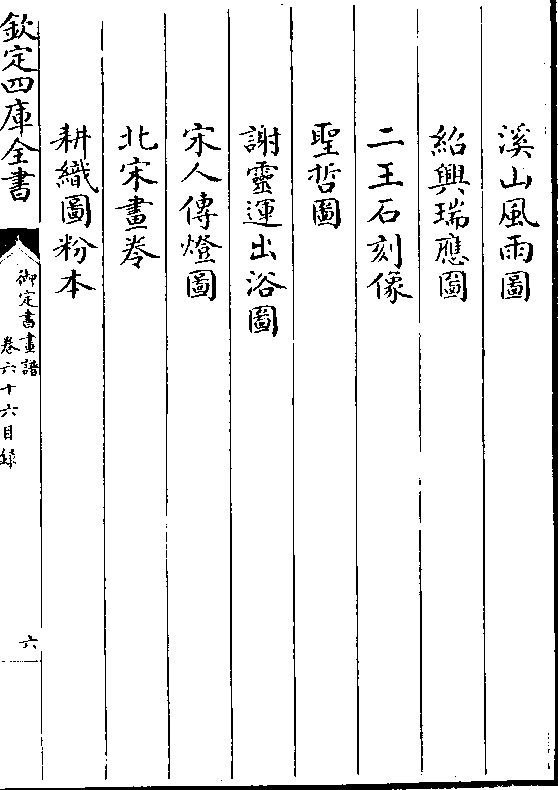 溪山風雨圖
紹興瑞應圖
二王石刻像
聖哲圖
謝靈運出浴圖
宋人傳燈圖
北宋畫卷
耕織圖粉本
欽定四庫全書
御定書畫譜
卷六十六目錄
六